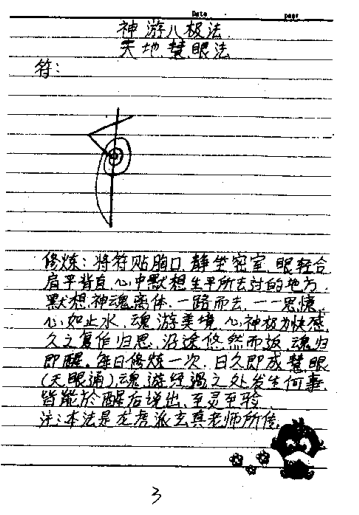 Date page
神游八极法
天地慧眼法
符:
修炼:将符贴胸口,静坐密室,眼轻合
肩平背直,心中默想生平所去过的地方
默想神魂离体,一路而去,一一思慎
心如止水,魂游美境,心神极为快感
久之复作归思,沿途悠然而返,魂归
即醒,每日修炼一次,日久即成慧眼
(天眼通)魂游经过之处发生何事,
皆能於醒后说出,至灵至验
注:本法是龙虎派玄真老师所传.
3